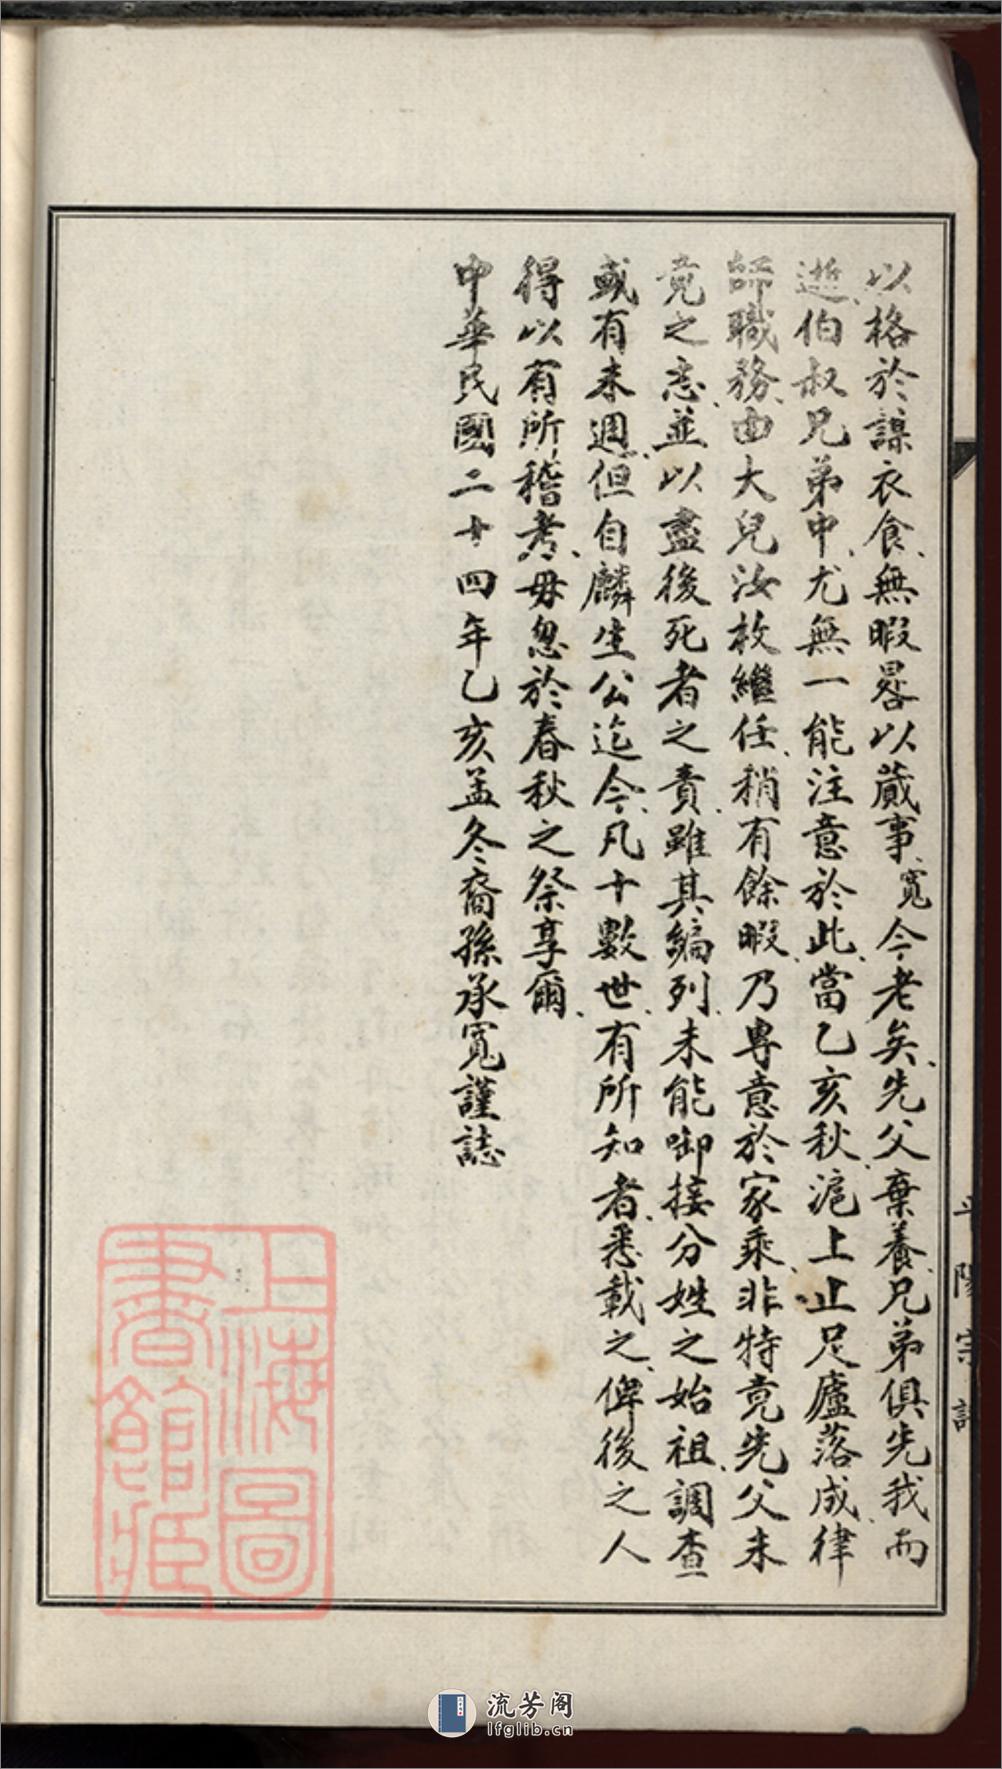 以格於謀衣食、無暇畧以蕆事、寬今老矣、先父棄養、兄弟俱先我而
逝、伯叔兄弟中、尤無一能注意於此、當乙亥秋、滬上止足廬落成、律
師職務、由大兒汝枚繼任、稍有餘暇、乃專意於家乘、非特竟先父未
竟之志、並以盡後死者之責、雖其編列、未能啣接分姓之始祖、調查
或有未週、但自麟生公迄今、凡十數世、有所知者、悉載之、俾後之人
得以有所稽考、毋忽於春秋之祭享爾、
中華民國二十四年乙亥孟冬裔孫承寬謹誌
平陽宗譜
上海圖
書館藏
流芳阁
lfglib.cn